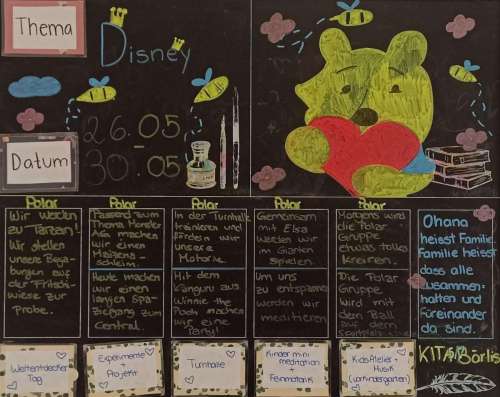 Thema
Disney
Datum
26.05
-
30.05
Polar
Wir werden
zu Tarzan!
Wir stellen
unsere Bega-
bungen auf
der Fritschi-
wiese zur
Probe.
Polar
Passend zum
Thema Monster
AG, machen
wir einen
Heute machen
wir einen
langen Spa-
ziergang zum
Central.
Polar
In der Turnhalle
trainieren und
fördern wir
unsere
Motorik.
Mit dem
Känguru aus
Winnie the
Pooh machen
wir eine
Party!
Polar
Gemeinsam
mit Elsa
werden wir
im Garten
spielen.
Um uns
zu entspannen
werden wir
meditieren
Polar
Morgens wird
die Polar
Gruppe
etwas tolles
kreiren.
Die Polar
Gruppe
wird mit
dem Ball
auf dem
Ohana
heisst Familie.
Familie heisst
dass alle
zusammen-
halten und
füreinander
da sind.
KITA Börlis
Weltentdecker
Tag
Experimente
+
Projekt
Turnhalle
Kinder mini
meditation
+
Feinmotorik
KidsAtelier +
Musik
(vorkindergarten)